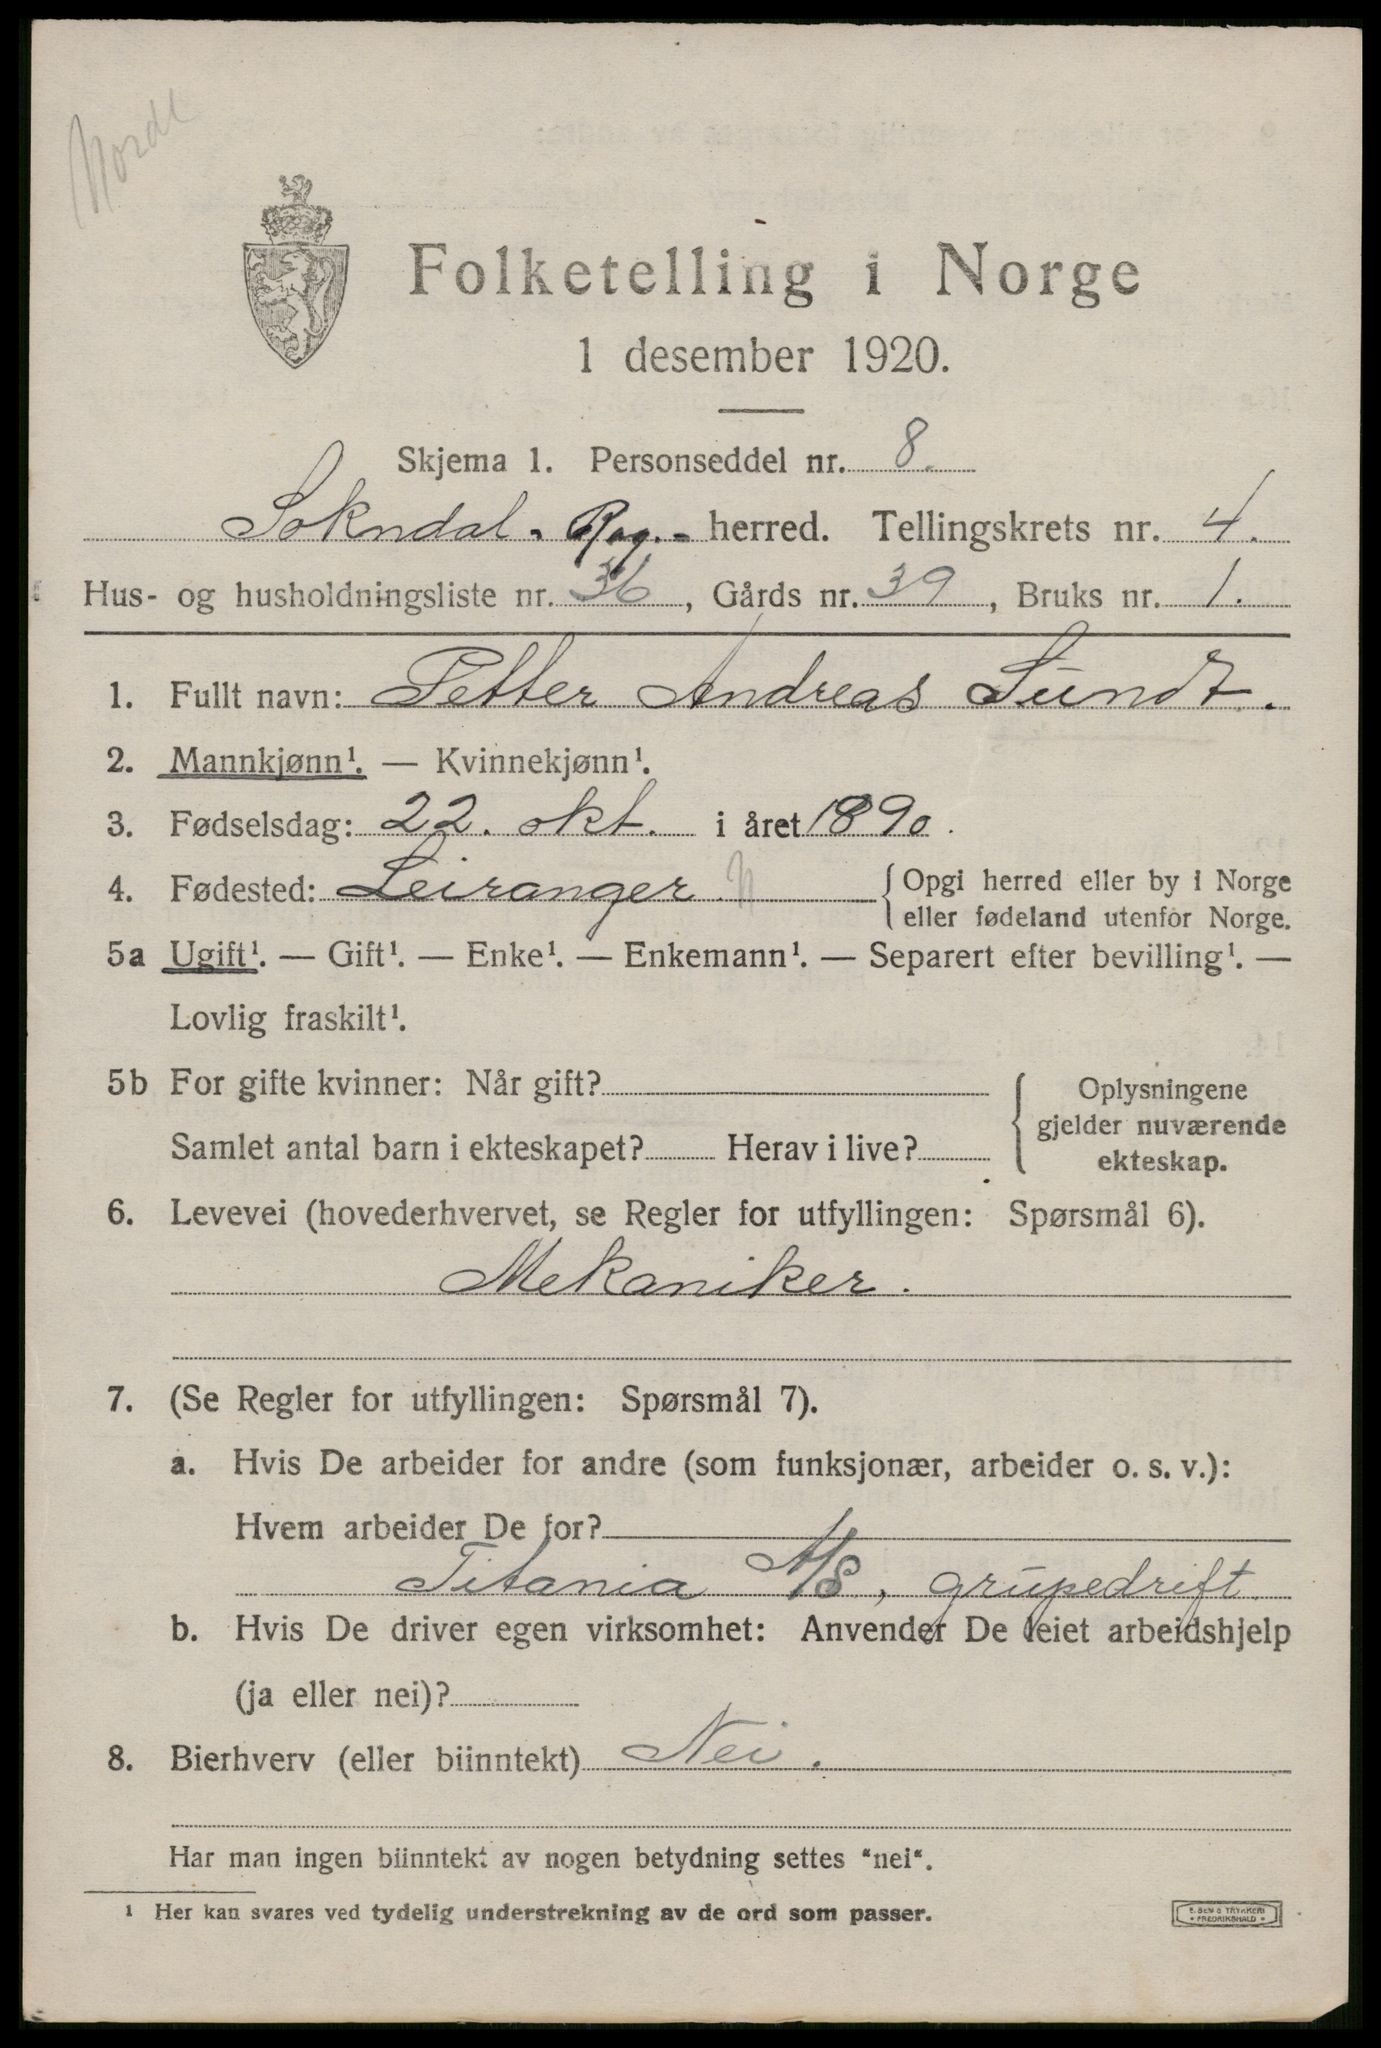 Nordl
Folketelling i Norge
1 desember 1920.
Skjema 1. Personseddel nr. 8.
Sokndal - Rog. - herred. Tellingskrets nr. 4.
Hus- og husholdningsliste nr. 36, Gårds nr. 39, Bruks nr. 1.
1. Fullt navn: Petter Andreas Sundt.
2. Mannkjønn¹. — Kvinnekjønn¹.
3. Fødselsdag: 22. okt. i året 1890.
4. Fødested: Leiranger N { Opgi herred eller by i Norge
eller fødeland utenfor Norge.
5a Ugift¹. — Gift¹. — Enke¹. — Enkemann¹. — Separert efter bevilling¹. —
Lovlig fraskilt¹.
5b For gifte kvinner: Når gift?
Samlet antal barn i ekteskapet? Herav i live?
{ Oplysningene
gjelder nuværende
ekteskap.
6. Levevei (hovederhvervet, se Regler for utfyllingen: Spørsmål 6).
Mekaniker.
7. (Se Regler for utfyllingen: Spørsmål 7).
a. Hvis De arbeider for andre (som funksjonær, arbeider o. s. v.):
Hvem arbeider De for?
Titania A/S, grupedrift
b. Hvis De driver egen virksomhet: Anvender De leiet arbeidshjelp
(ja eller nei)?
8. Bierhverv (eller biinntekt) Nei.
Har man ingen biinntekt av nogen betydning settes "nei".
¹ Her kan svares ved tydelig understrekning av de ord som passer.
E. SEM'S TRYKKERI
• FREDRIKSHALD •